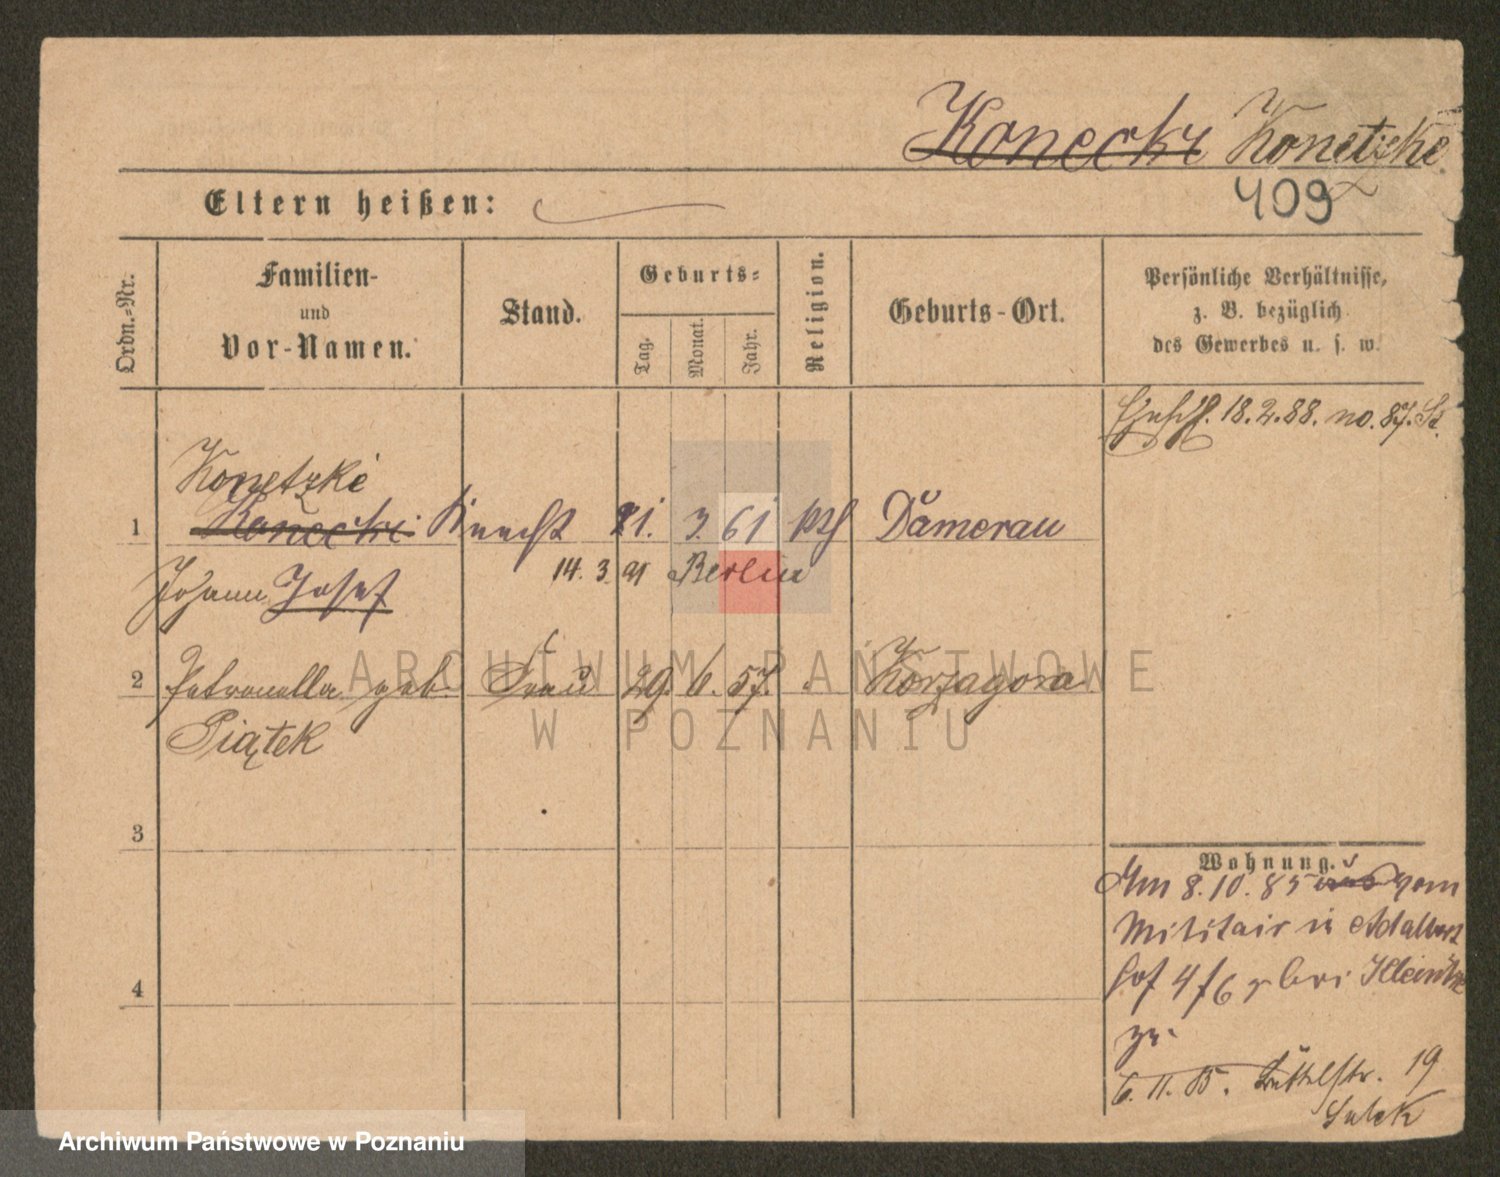 Konecki Konetzke
Eltern heißen:
409
Ordn.-Nr.
Familien-
und
Vor-Namen.
Stand.
Geburts-
Tag.
Monat.
Jahr.
Religion.
Geburts-Ort.
Persönliche Verhältnisse,
z. B. bezüglich
des Gewerbes u. s. w.
18.2.88. no. 87.
Konetzke
1 Konecki Knecht 21. 3. 61 kth Damerau
Johann Josef 14. 3. 91 Berlin
2 Petronella geb. Frau 29. 6. 57. Korzagora
Piątek
3
4
Wohnung.
Am 8.10.85 aus vom
Militair in Adalbert
hof 4/6 bei
zu
6.11.85. Büttelstr. 19
ARCHIWUM PAŃSTWOWE
W POZNANIU
Archiwum Państwowe w Poznaniu